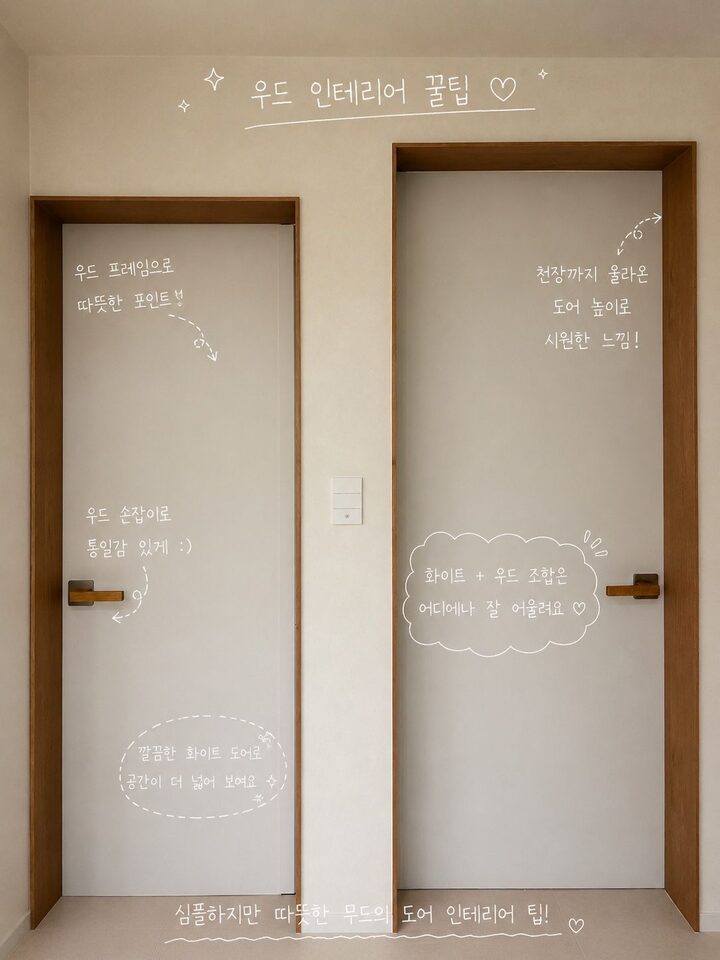 우드 인테리어 꿀팁 ♡
우드 프레임으로
따뜻한 포인트!!
천장까지 올라온
도어 높이로
시원한 느낌!
우드 손잡이로
통일감 있게 :)
화이트 + 우드 조합은
어디에나 잘 어울려요 ♡
깔끔한 화이트 도어로
공간이 더 넓어 보여요
심플하지만 따뜻한 무드의 도어 인테리어 팁! ♡